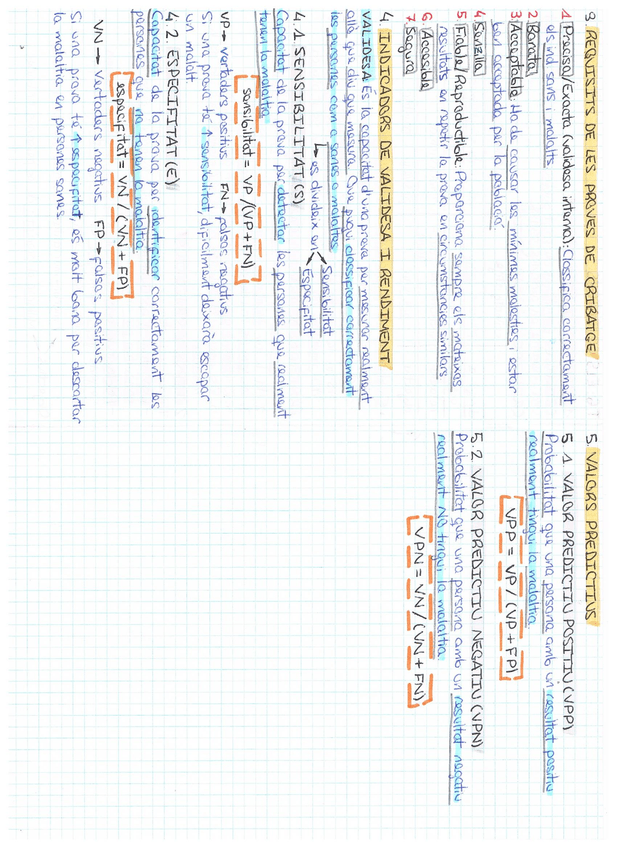 3. REQUISITS DE LES PROVES DE CRIBATGE
1. Precisa/Exacta (validesa interna): Classifica correctament
els ind sans i malalts
2. Barata
3. Acceptable: Ha de causar les mínimes molesties i estar
ben acceptada per la població
4. Senzilla
5. Fiable/Reproductible: Proporciona sempre els mateixos
resultats en repetir la prova en circumstancies similars
6. Accesible
7. Segura
4. INDICADORS DE VALIDESA I RENDIMENT
VALIDESA: És la capacitat d'una prova per mesurar realment
allò que diu que mesura. Que pugui classificar correctament
les persones com a sanes o malaltes
↳ es divideix en
Sensibilitat
Especifitat
4.1 SENSIBILITAT (S)
Capacitat de la prova per detectar les persones que realment
tenen la malaltia
sensibilitat = VP /(VP+FN)
VP → vertaders positius FN → falsos negatius
Si una prova té ↑ sensibilitat dificilment deixarà escapar
un malalt
4.2 ESPECIFITAT (E)
Capacitat de la prova per identificar correctament les
persones que no tenen la malaltia
especifitat = VN / (VN + FP)
VN → vertaders negatius FP → falsos positius
Si una prova té ↑ especifitat, es molt bona per descartar
la malaltia en persones sanes
5. VALORS PREDICTIUS
5.1 VALOR PREDICTIU POSITIU (VPP)
Probabilitat que una persona amb un resultat positiu
realment tingui la malaltia
VPP = VP / (VP + FP)
5.2 VALOR PREDICTIU NEGATIU (VPN)
Probabilitat que una persona amb un resultat negatiu
realment NO tingui la malaltia
VPN = VN / (VN + FN)